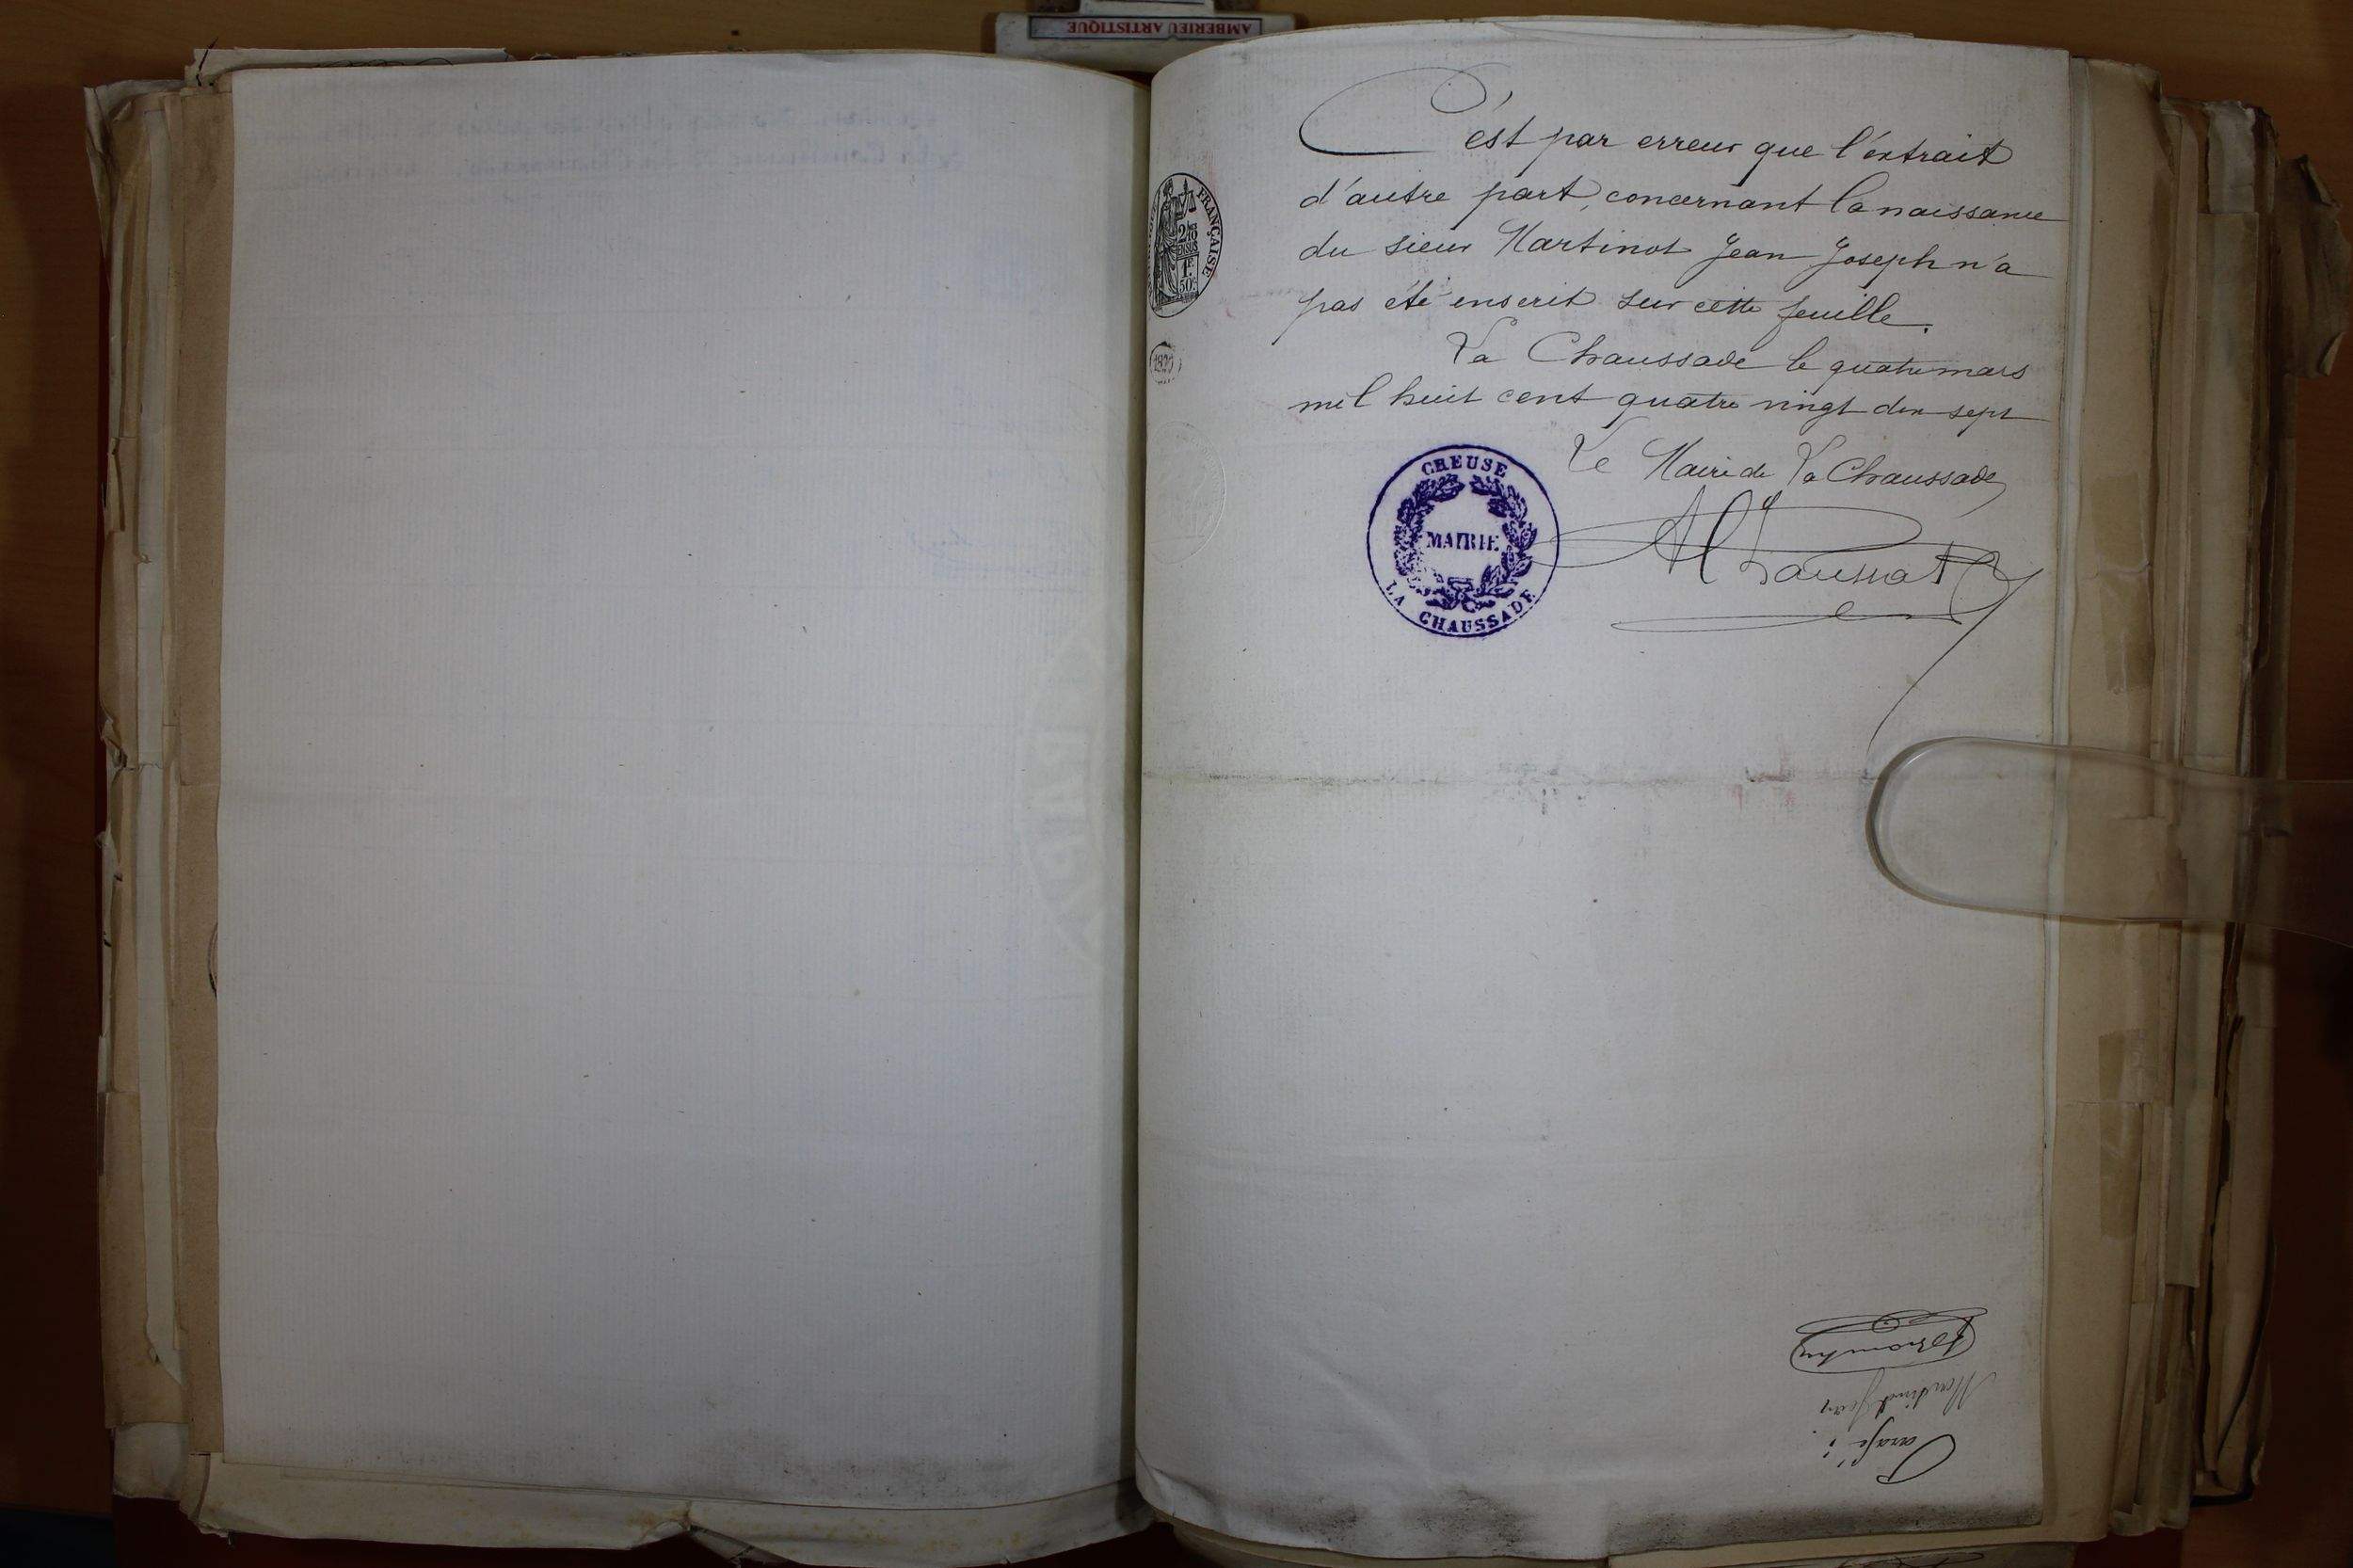 AMBERIEU ARTISTIQUE
C'est par erreur que l'extrait
d'autre part, concernant la naissance
du sieur Martinot Jean Joseph n'a
pas été inscrit sur cette feuille.
La Chaussade le quatre mars
mil huit cent quatre vingt dix sept
Le Maire de La Chaussade
FRANÇAISE
2/10
EN SUS
1F
50c
CREUSE
MAIRIE
LA CHAUSSADE
Parafé :
Martinot Jean